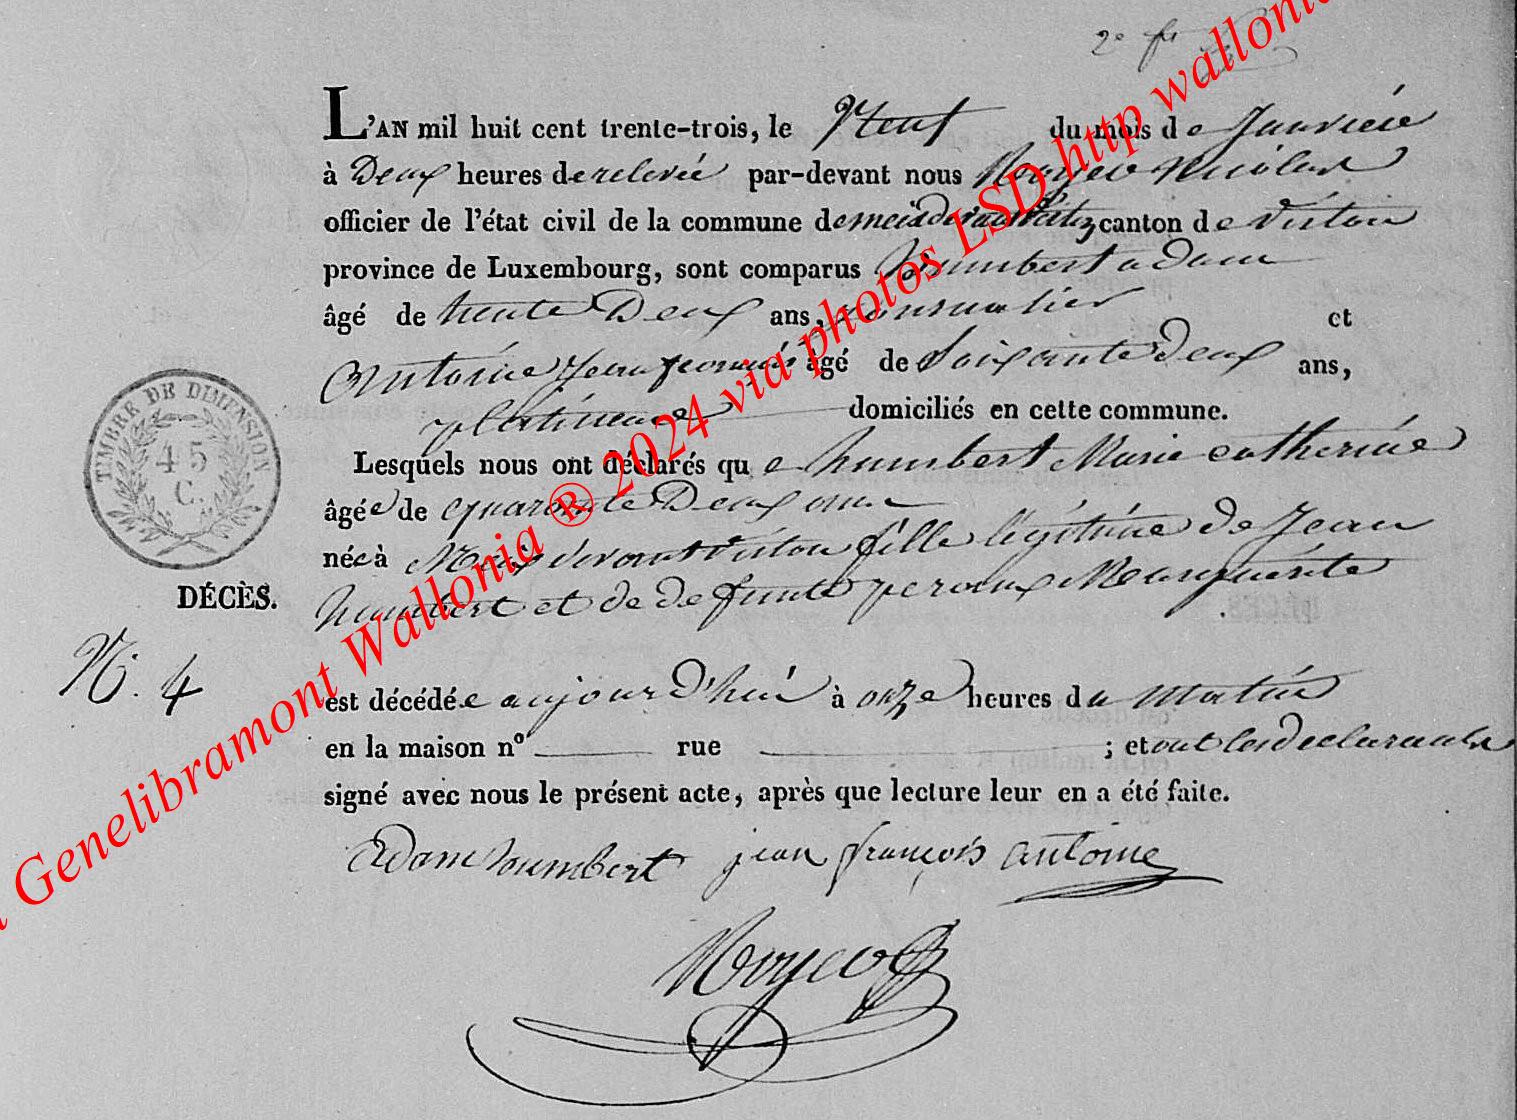 2e
L'AN mil huit cent trente-trois, le Neuf du mois de Janvier
à Deux heures de relevée par-devant nous Noyer Nicolas
officier de l'état civil de la commune de meix devant virton canton de Virton
province de Luxembourg, sont comparus humbert adam
âgé de trente Deux ans, journalier et
Antoine Jean françois âgé de Soixante deux ans,
domiciliés en cette commune.
Lesquels nous ont déclarés que humbert Marie catherine
âgée de quarante Deux ans
née à Meix devant virton fille légitime de Jean
humbert et de defunte peroux Marguerite
TIMBRE DE DIMENSION
45
C.
DÉCÈS.
N. 4
est décédée aujourd'hui à onze heures du matin
en la maison no rue ; et ont les declarants
signé avec nous le présent acte, après que lecture leur en a été faite.
Adam humbert jean françois antoine
Genelibramont Wallonia ® 2024 via photos LSD http wallonia